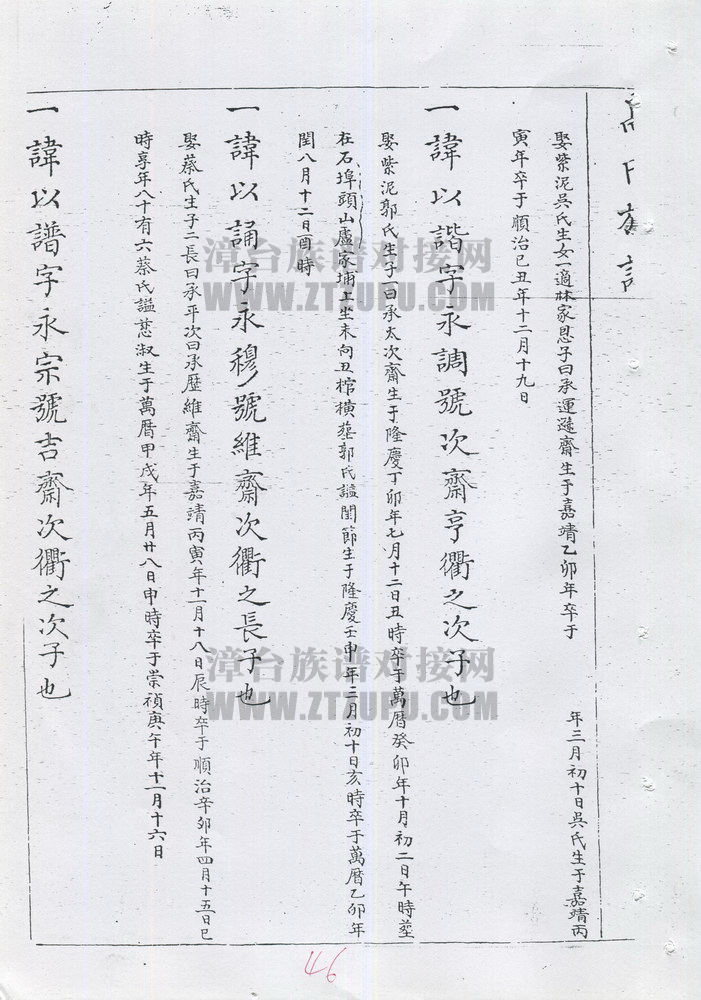 娶紫泥吳氏生女一適林家恩子曰承運邃齋生于嘉靖乙卯年卒于 年三月初十日吳氏生于嘉靖丙
寅年卒于順治己丑年十二月十九日
一諱以諧字永調號次齋亨衢之次子也
娶紫泥郭氏生子一曰承太次齋生于隆慶丁卯年七月十二日丑時卒于萬曆癸卯年十月初二日午時塟
在石埠頭山盧家埔上坐未向丑棺橫塟郭氏謚閨節生于隆慶壬申年二月初十日亥時卒于萬曆乙卯年
閏八月十二日酉時
一諱以誦字永穆號維齋次衢之長子也
娶蔡氏生子二長曰承平次曰承歷維齋生于嘉靖丙寅年十一月十八日辰時卒于順治辛卯年四月十五日巳
時享年八十有六蔡氏謚慈淑生于萬曆甲戌年五月廿八日申時卒于崇禎庚午年十一月十六日
一諱以譜字永宗號吉齋次衢之次子也
漳台族谱对接网
WWW.ZTZUPU.COM
漳台族谱对接网
WWW.ZTZUPU.COM
46